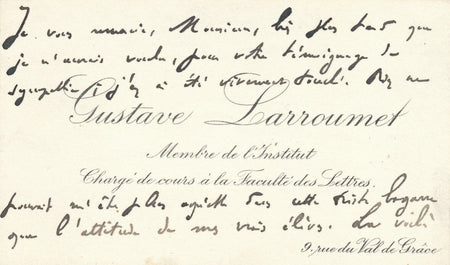 Je vous remercie, Monsieur, bien plus tard que
je n'aurais voulu, pour votre témoignage de
sympathie ; j'en ai été vivement touché. Rien ne
Gustave Larroumet
Membre de l'Institut
Chargé de cours à la Faculté des Lettres.
pouvait m'être plus agréable dans cette triste bagarre
que l'attitude de mes vrais élèves. La voilà
9, rue du Val de Grâce